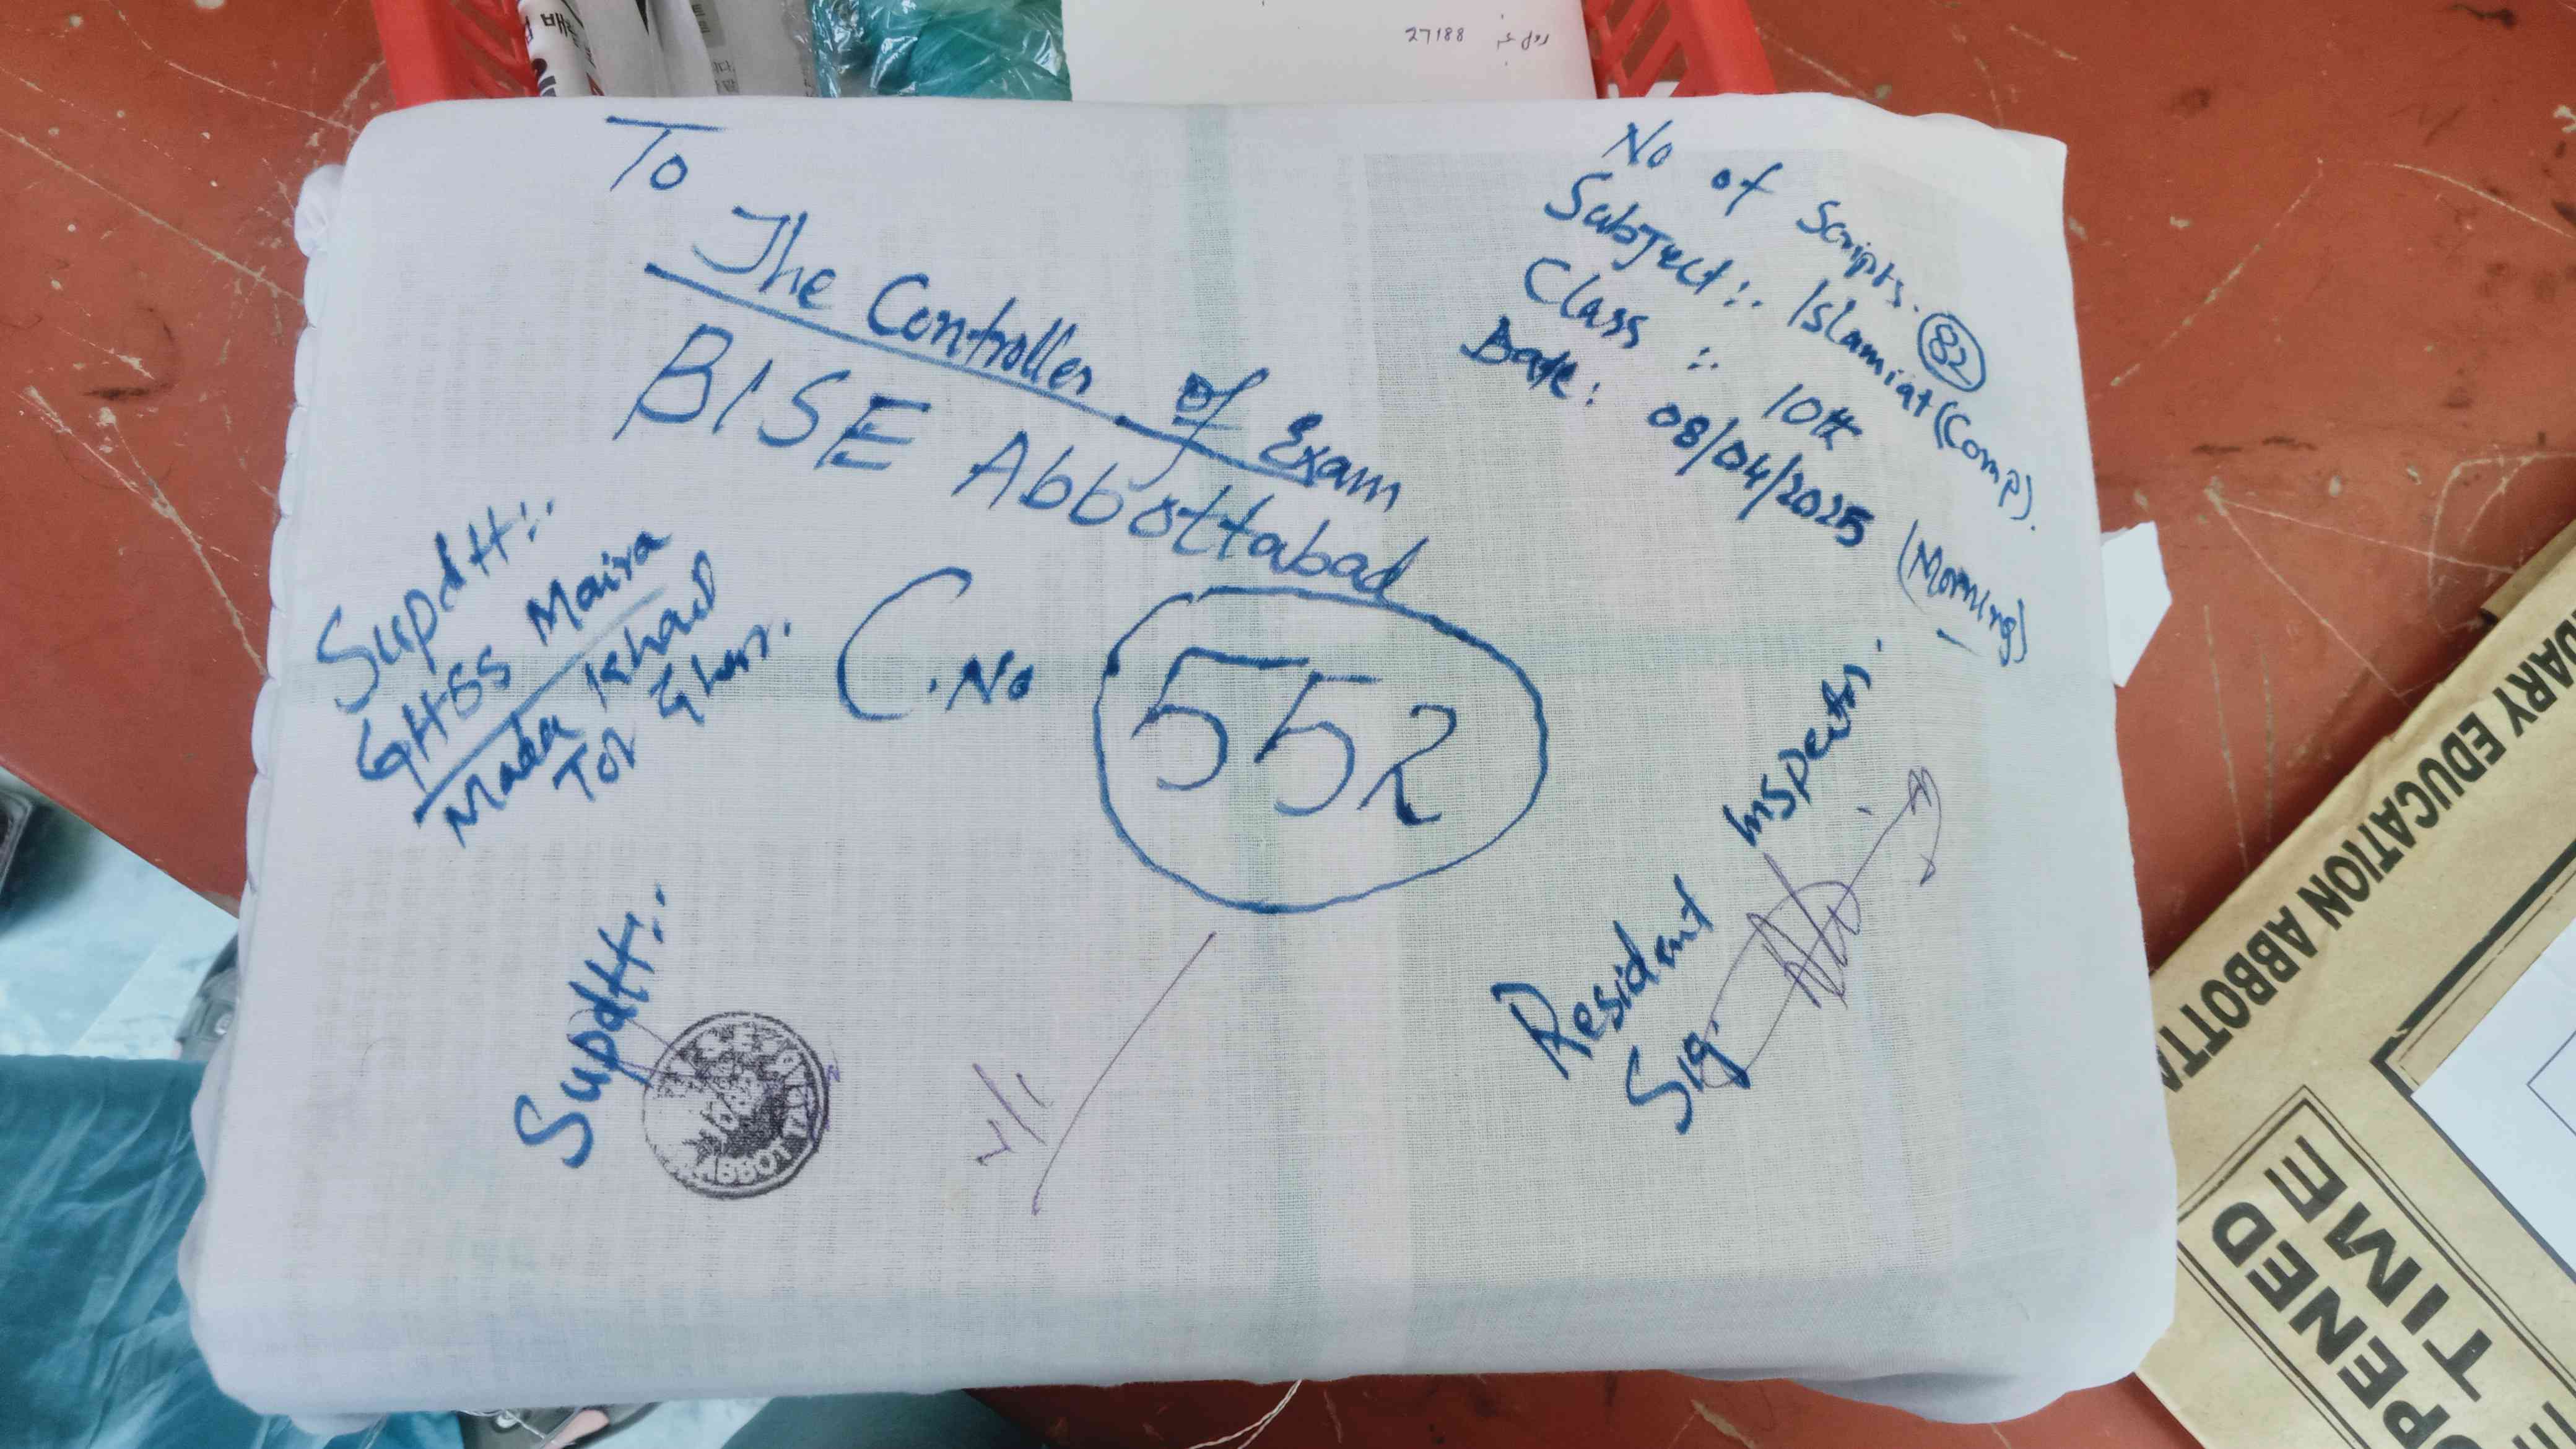 27188
To
The Controller of Exam
BISE Abbottabad
No of Scripts. 82
Subject:. Islamiat (Comp).
Class :. 10th
Date: 08/04/2025 (Morning)
Supdtt:.
GHSS Maira
Mada Khail
Tor Ghar.
C.No 552
Supdtt:.
ABBOTTA
Residant Inspector.
Sig.
DARY EDUCATION ABBOTTA
OPENED
TIME